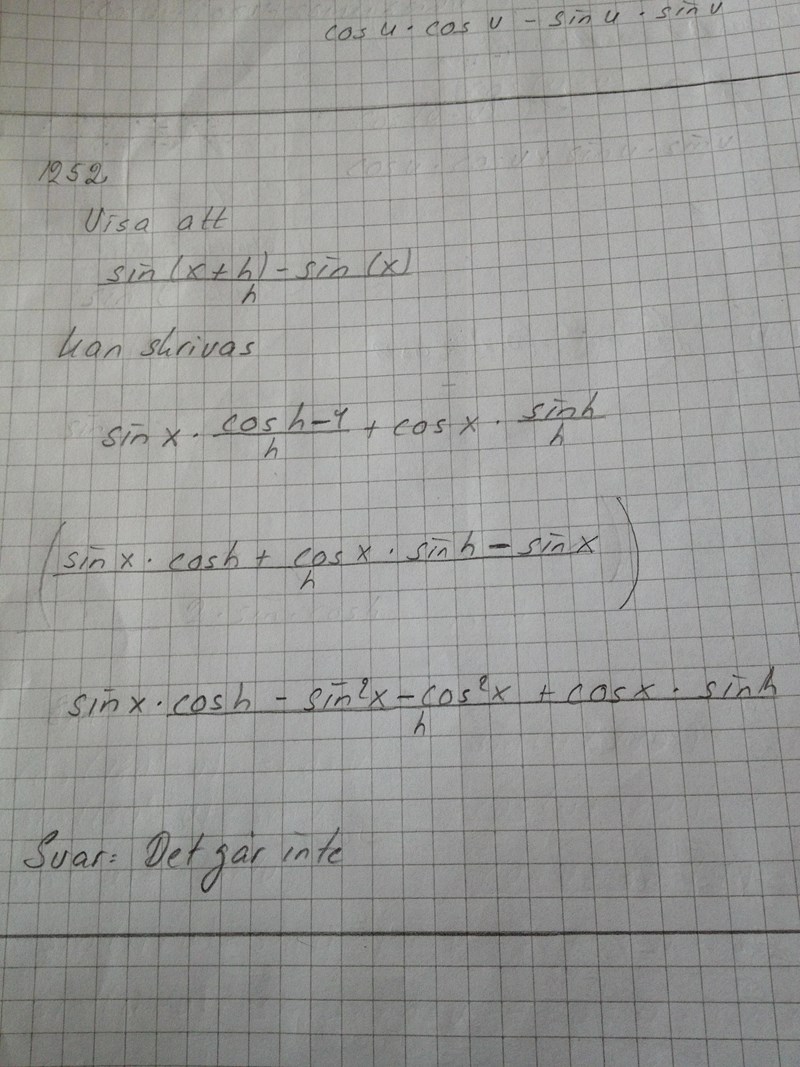 cos u · cos v - sin u · sin v
1252
Visa att
sin (x + h) - sin (x)
h
kan skrivas
sin x · cos h - 1 / h + cos x · sin h / h
(sin x · cos h + cos x · sin h - sin x / h)
sin x · cos h - sin²x - cos²x + cos x · sin h
h
Svar: Det går inte